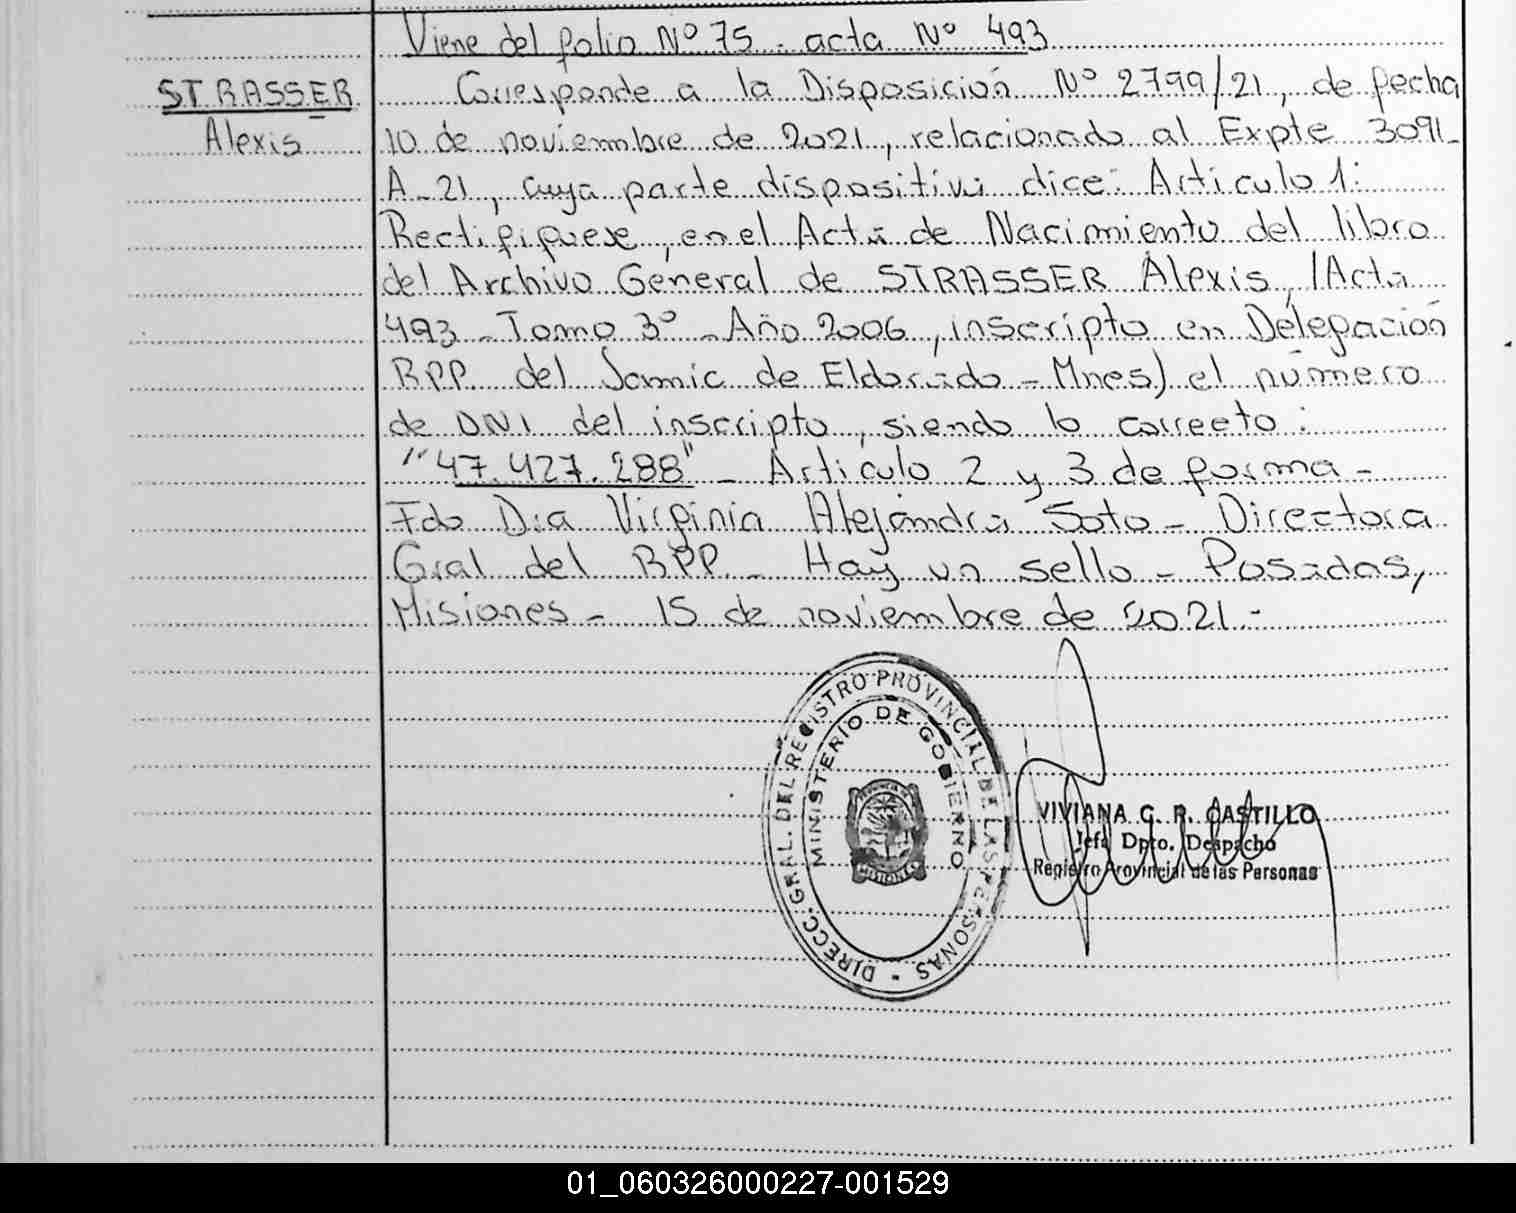 Viene del folio Nº 75 - acta Nº 493
STRASSER
Alexis
Corresponde a la Disposición Nº 2799/21, de fecha
10 de noviembre de 2021, relacionado al Expte 3091-
A-21, cuya parte dispositiva dice: Articulo 1:
Rectifiquese, en el Acta de Nacimiento del libro
del Archivo General de STRASSER Alexis, (Acta
493 - Tomo 3º - Año 2006, inscripto en Delegación
RPP del Samic de Eldorado - Mnes) el número
de DNI del inscripto, siendo lo correcto:
"47.427.288" - Articulo 2 y 3 de forma -
Fdo Dra Virginia Alejandra Soto - Directora
Gral del RPP - Hay un sello - Posadas,
Misiones - 15 de noviembre de 2021 -
DIRECC. GRAL. DEL REGISTRO PROVINCIAL DE LAS PERSONAS -
MINISTERIO DE GOBIERNO
MISIONES
VIVIANA G. R. CASTILLO
Jefa Dpto. Despacho
Registro Provincial de las Personas
01_060326000227-001529